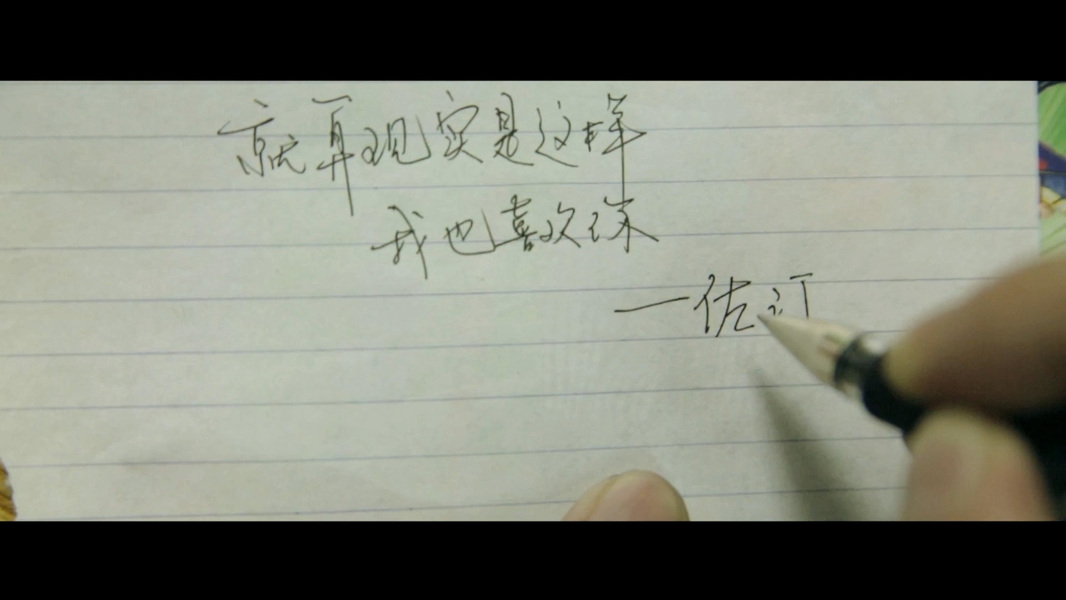 就算现实是这样
我也喜欢你
一估订